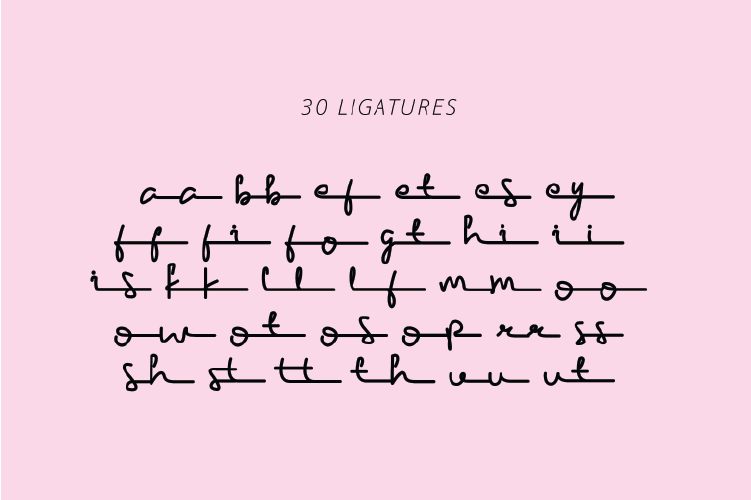 30 LIGATURES
aa bb ef et es ey
ff fi fo gt hi ii
is kk ll lf mm oo
on ot os op rr ss
sh st tt th uu ut